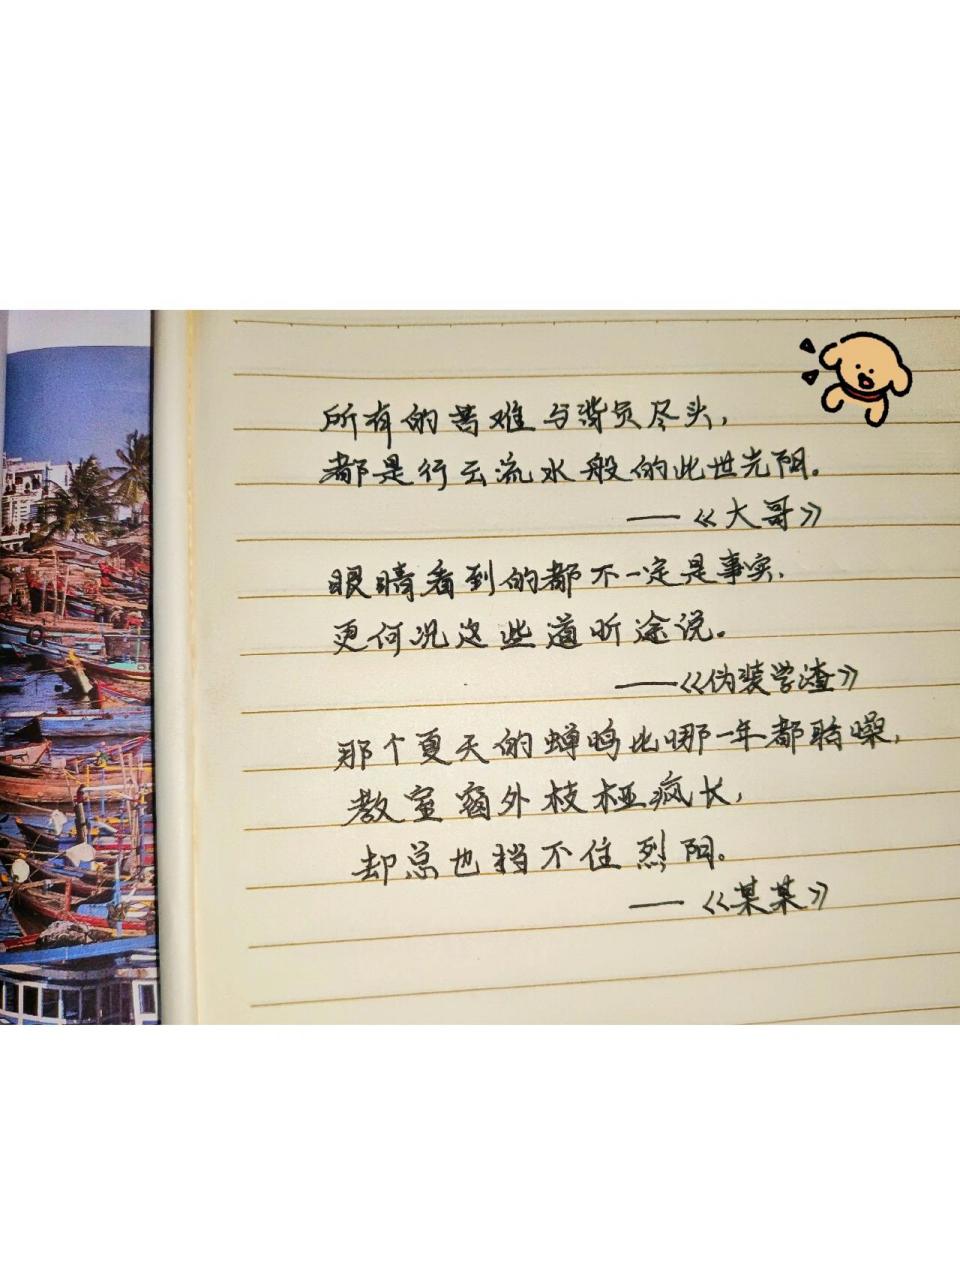 所有的苦难与背负尽头,
都是行云流水般的此世光阴。
——《大哥》
眼睛看到的都不一定是事实,
更何况这些道听途说。
——《伪装学渣》
那个夏天的蝉鸣比哪一年都聒噪,
教室窗外枝桠疯长,
却总也挡不住烈阳。
——《某某》